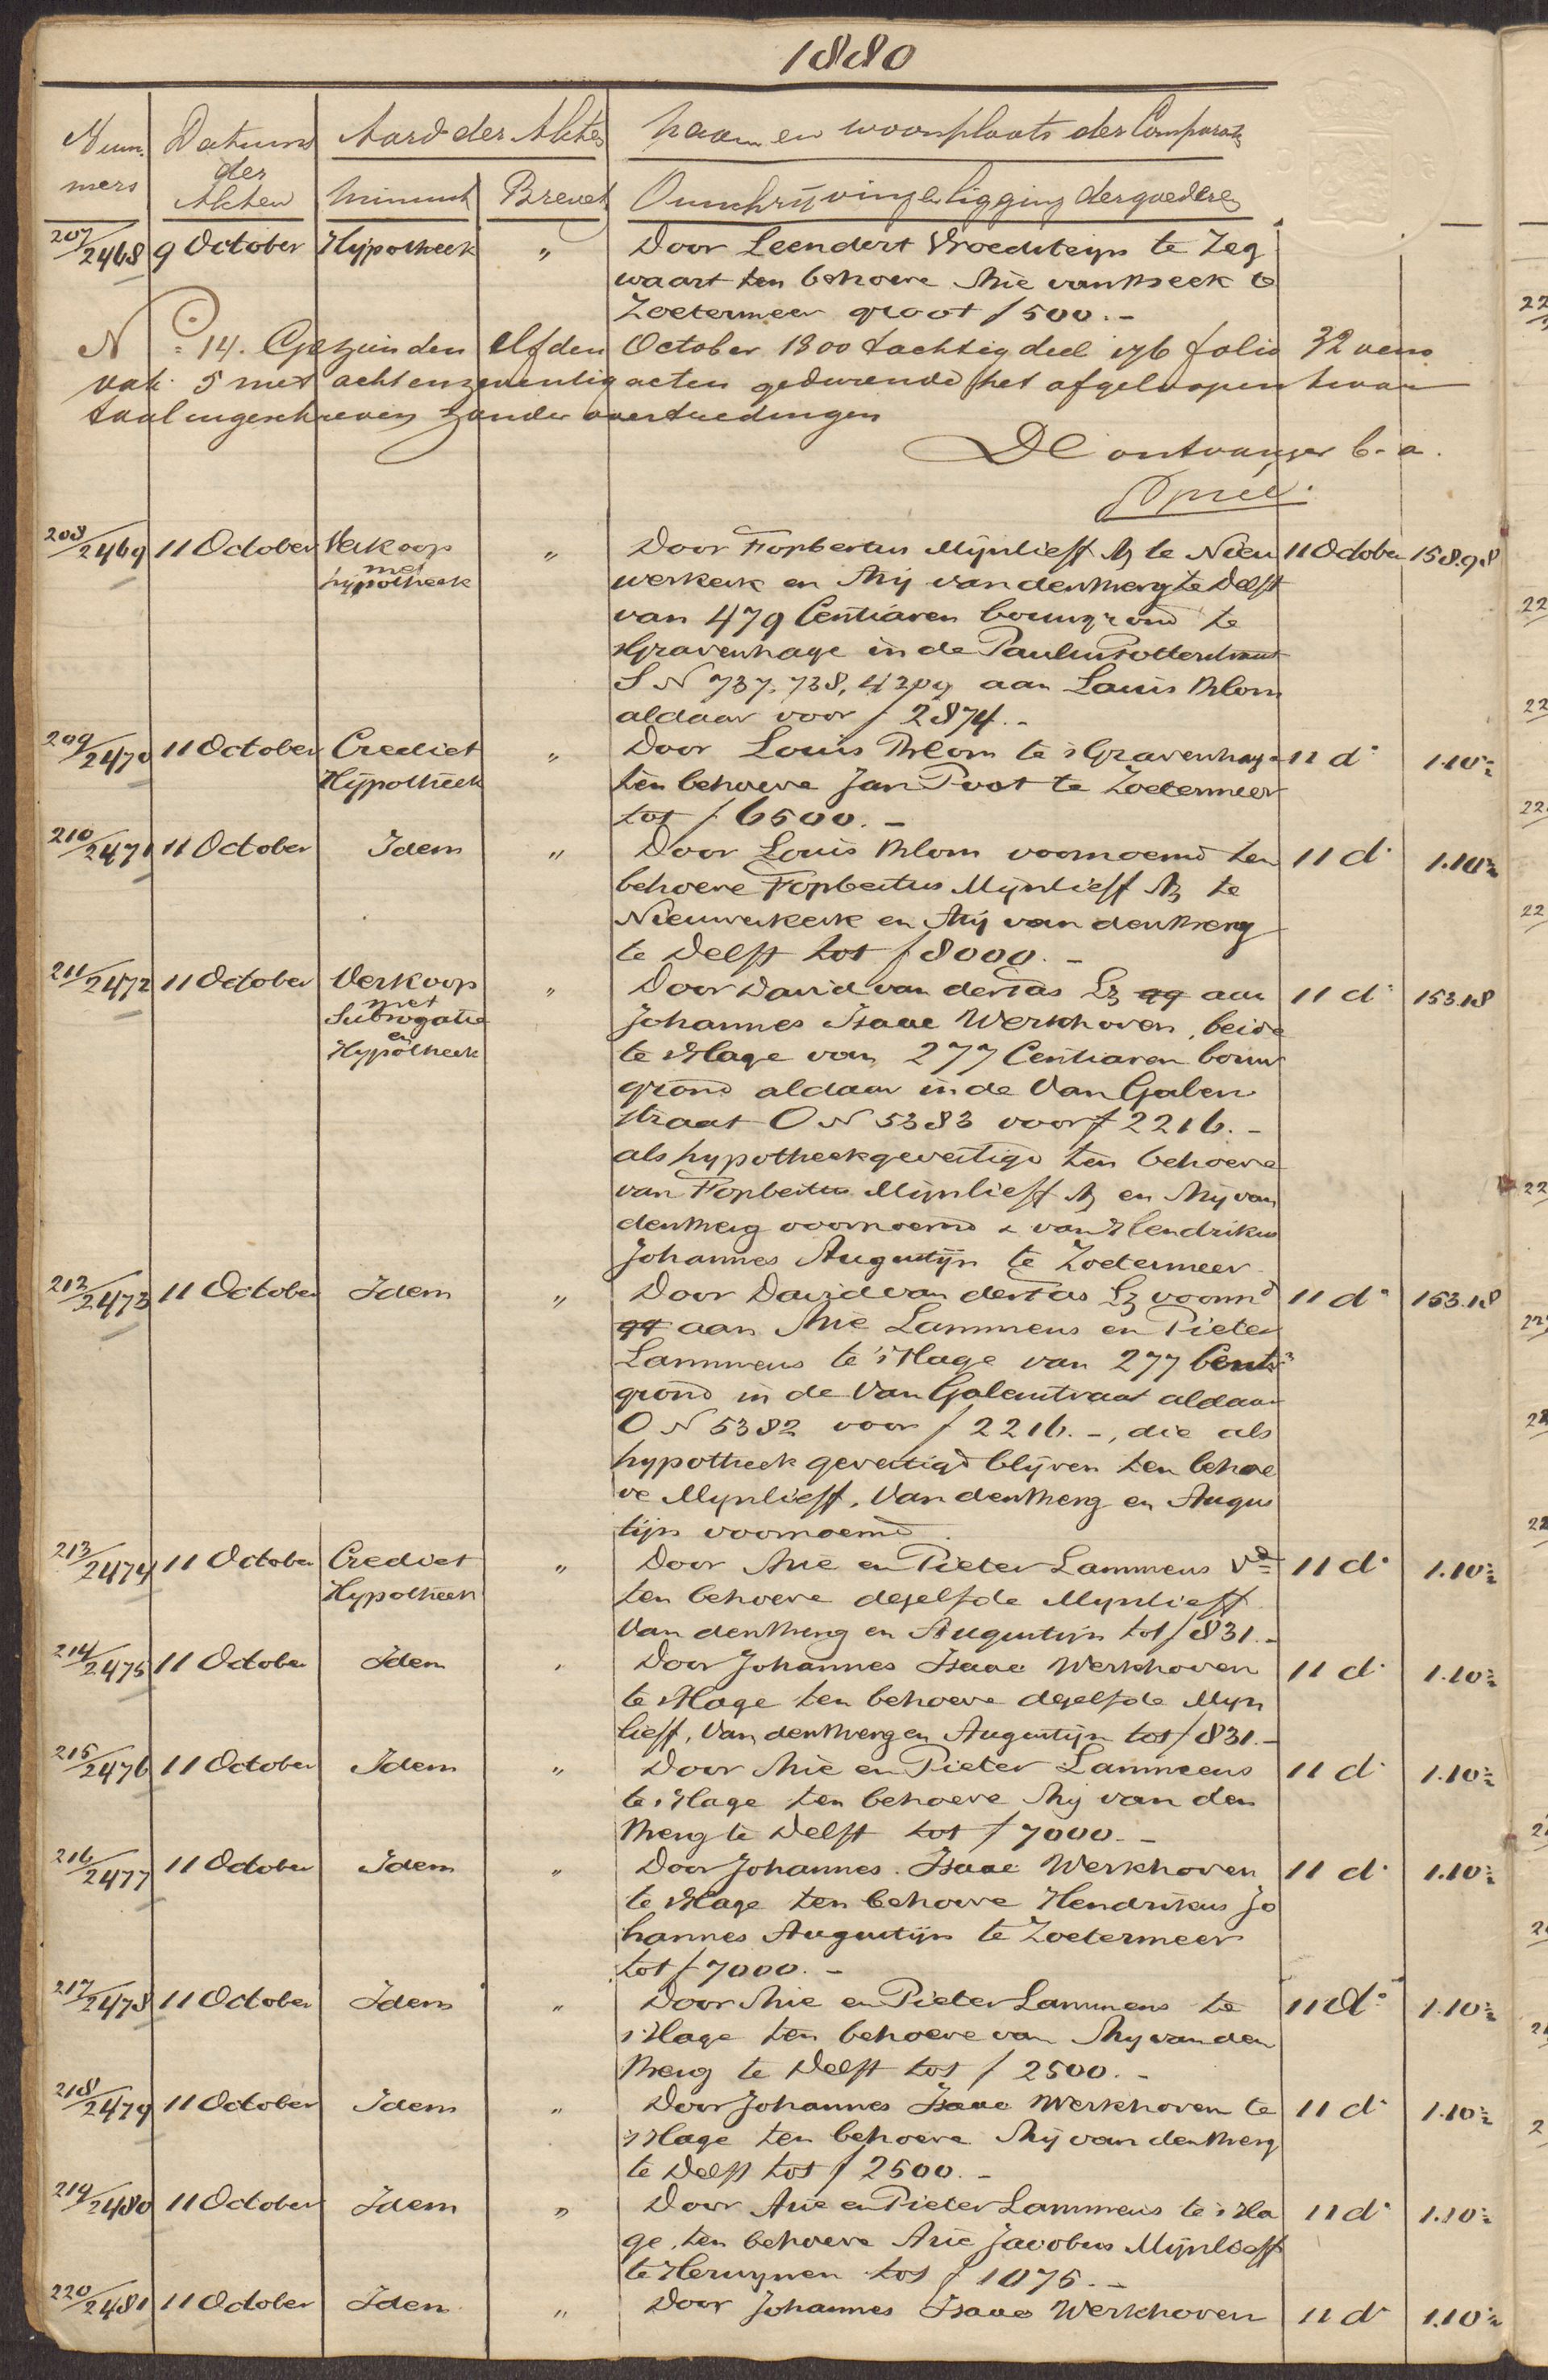 1880
Num- Datums Aard der Akte Naam en woonplaats der Comparanten
mers der Akten Minuut Brevet Omschrijving en ligging der goederen
207/2468 9 October Hypotheek " Door Leendert Vroedsteijn te Zeg
waart ten behoeve Arie van Beek te
Zoetermeer groot f 500.-
No 14. Gezien den elfden October 1800 tachtig deel 176 folio 32 verso
vak 5 met acht en zeventig acten gedurende het afgeloopen kwar
taal ingeschreven zonder overtredingen
De ontvanger b. a.
208/2469 11 October Verkoop met hypotheek " Door Fopbertus Mijnlieff Az te Nieu 11 October 158.98
werkerk en Arij van den Berg te Delft
van 479 Centiaren bouwgrond te
sGravenhage in de Paulus Potterstraat
S N 737, 738, 4209 aan Louis Blom
aldaar voor f 2874.-
209/2470 11 October Crediet Hypotheek " Door Louis Blom te sGravenhage 11 do 1.10½
ten behoeve Jan Poot te Zoetermeer
tot f 6500.-
210/2471 11 October Idem " Door Louis Blom voornoemd ten 11 do 1.10½
behoeve Fopbertus Mijnlieff Az te
Nieuwerkerk en Arij van den Berg
te Delft tot f 8000.-
211/2472 11 October Verkoop met Subrogatie en Hypotheek " Door David van der Tas Lz qq aan 11 do 153.18
Johannes Isaac Werkhoven, beide
te sHage van 277 Centiaren bouw
grond aldaar in de Van Galen
straat O N 5383 voor f 2216.-
als hypotheek gevestigd ten behoeve
van Fopbertus Mijnlieff Az en Arij van
den Berg voornoemd & van Hendrikus
Johannes Augustijn te Zoetermeer
212/2473 11 October Idem " Door David van der Tas Lz voornd 11 do 153.18
qq aan Arie Lammens en Pieter
Lammens te 's Hage van 277 Cents
grond in de Van Galenstraat aldaar
O N 5382 voor f 2216.-, die als
hypotheek gevestigd blijven ten behoe
ve Mijnlieff, Van den Berg en Augus
tijn voornoemd.
213/2474 11 October Crediet Hypotheek " Door Arie en Pieter Lammens Vd 11 do 1.10½
ten behoeve dezelfde Mijnlieff
Van den Berg en Augustijn tot f 831.-
214/2475 11 October Idem " Door Johannes Isaac Werkhoven 11 do 1.10½
te sHage ten behoeve dezelfde Mijn
lieff, Van den Berg en Augustijn tot f 831.-
215/2476 11 October Idem " Door Arie en Pieter Lammens 11 do 1.10½
te sHage ten behoeve Arij van den
Berg te Delft tot f 7000.-
216/2477 11 October Idem " Door Johannes Isaac Werkhoven 11 do 1.10½
te sHage ten behoeve Hendrikus Jo
hannes Augustijn te Zoetermeer
tot f 7000.-
217/2478 11 October Idem " Door Arie en Pieter Lammens te 11 do 1.10½
sHage ten behoeve van Arij van den
Berg te Delft tot f 2500.-
218/2479 11 October Idem " Door Johannes Isaac Werkhoven te 11 do 1.10½
sHage ten behoeve Arij van den Berg
te Delft tot f 2500.-
219/2480 11 October Idem " Door Arie en Pieter Lammens te sHa 11 do 1.10½
ge, ten behoeve Arie Jacobus Mijnlieff
te Herwijnen tot f 1075.-
220/2481 11 October Idem " Door Johannes Isaac Werkhoven 11 do 1.10½